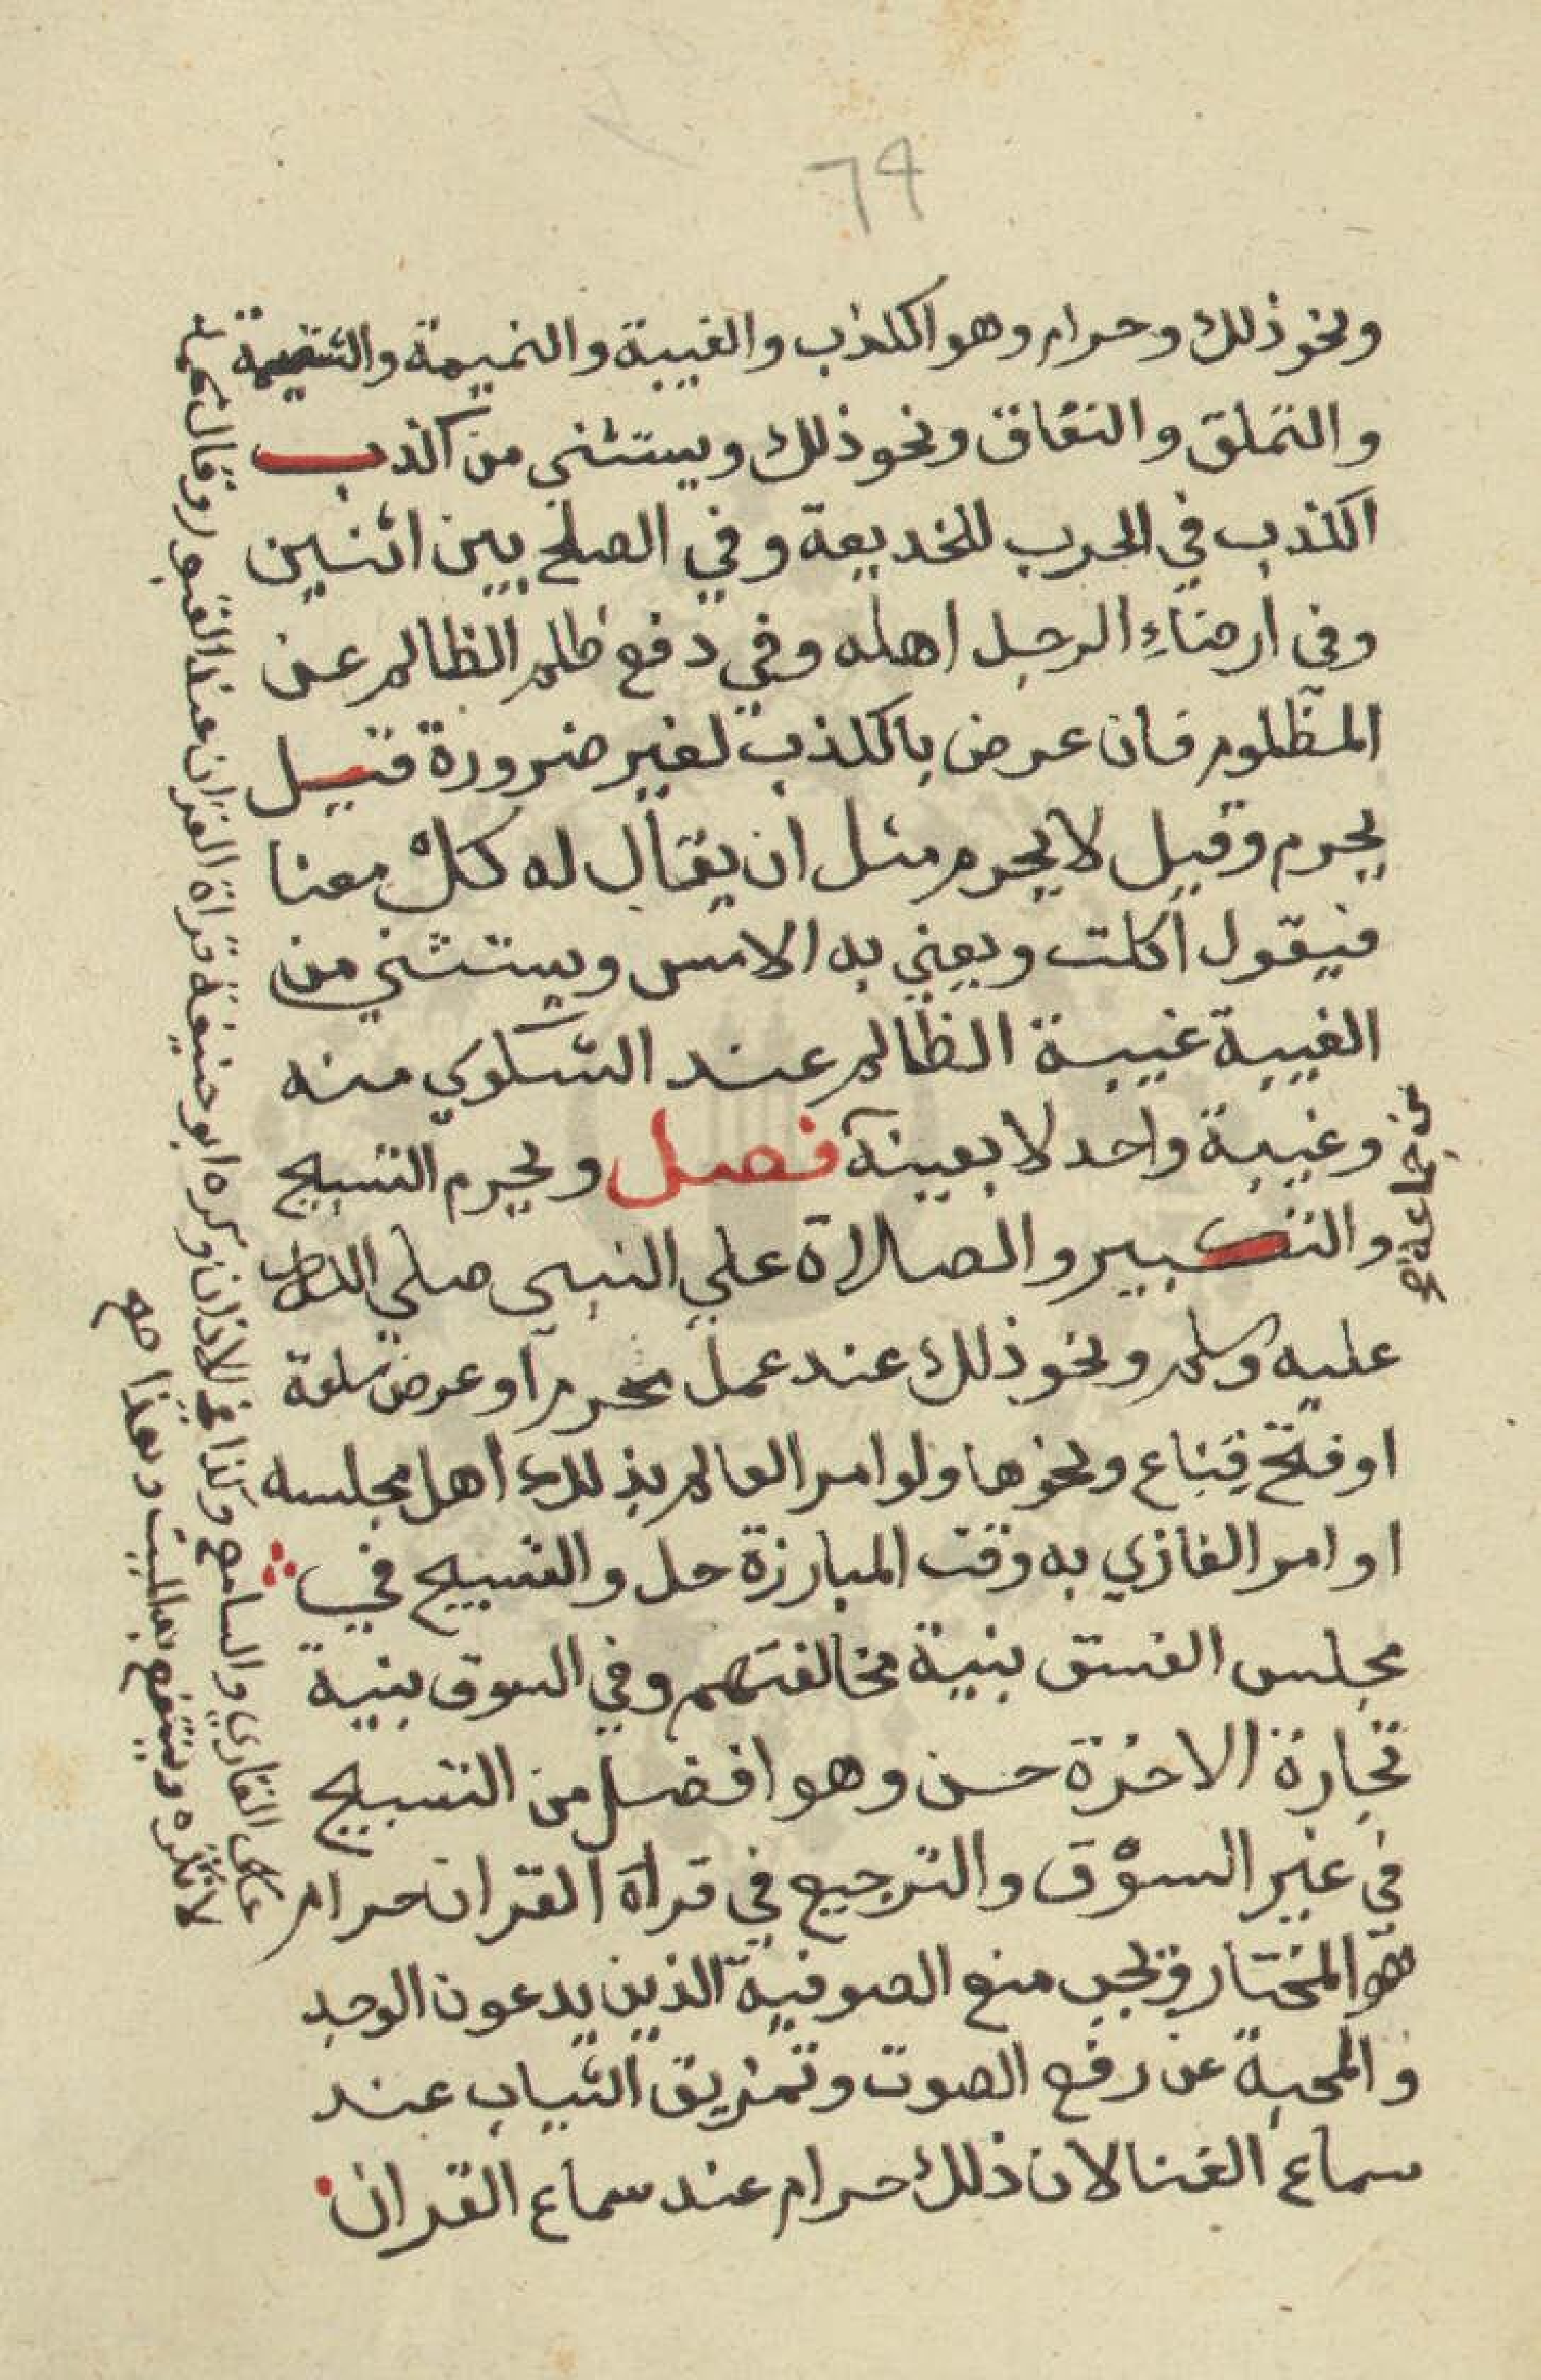 ٦٩
ونحو ذلك وحرام وهو الكذب والغيبة والنميمة والشتيمة
والتملق والنفاق ونحو ذلك ويستثني من الكذب
الكذب في الحرب للخديعة وفي الصلح بين اثنين
وفي ارضاء الرجل اهله وفي دفع ظلم الظالم عن
المظلوم فان عرض بالكذب لغير ضرورة قيل
يحرم وقيل لا يحرم مثل ان يقال له كل معنا
فيقول اكلت ويعني به الامس ويستثني من
الغيبة غيبة الظالم عند الشكوي منه
وغيبة واحد لا بعينه فصل ويحرم التسبيح
من جماعة
والتكبير والصلاة علي النبي صلي الله
عليه وسلم ونحو ذلك عند عمل محرم او عرض سلعة
او فتح قناع ونحوها ولو امر العالم بذلك اهل مجلسه
او امر الغازي به وقت المبارزة حل والتسبيح في
مجلس الفسق بنية مخالفتهم وفي السوق بنية
تجارة الاخرة حسن وهو افضل من التسبيح
في غير السوق والترجيع في قراة القران حرام
هو المختار ويجب منع الصوفية الذين يدعون الوجد
والمحبة عن رفع الصوت وتمزيق الثياب عند
سماع الغنا لان ذلك حرام عند سماع القران
علي القاري والسامع وكذا في الاذان وكره ابو حنيفة قراة القران عند القبور وقال محمد
لا تكره وينتفع به الميت وبهذا